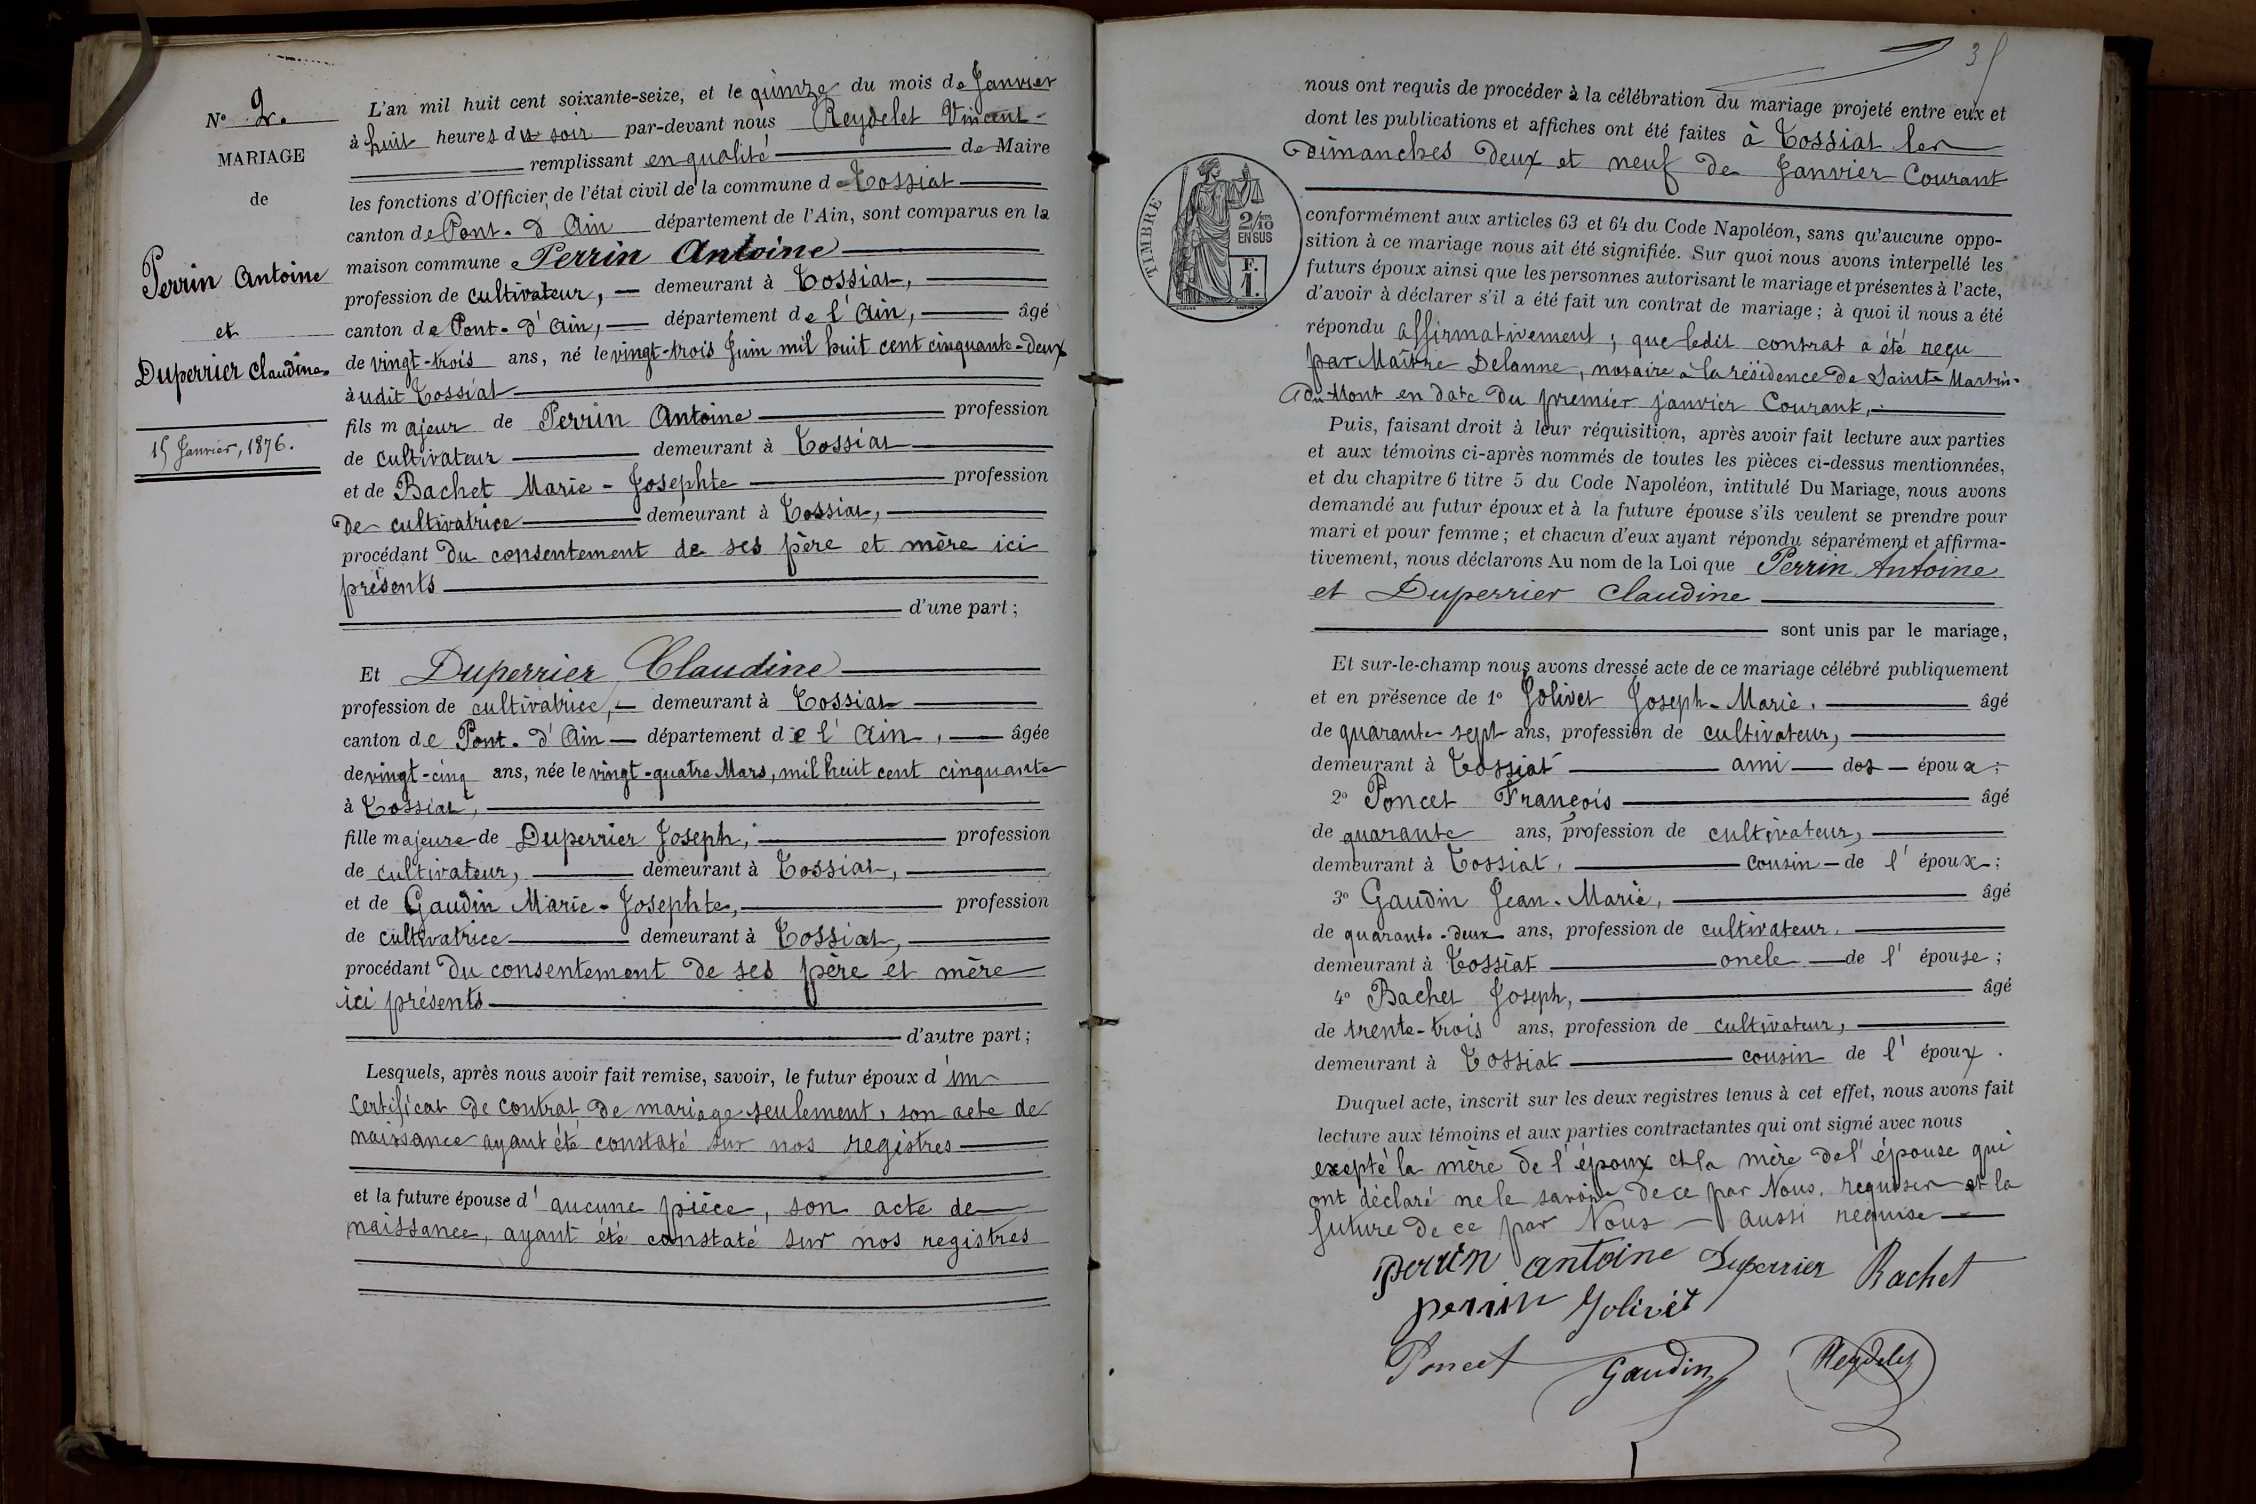 N° 2.
MARIAGE
de
Perrin Antoine
et
Duperrier Claudine
15 Janvier, 1876.
L'an mil huit cent soixante-seize, et le quinze du mois de Janvier
à huit heures du soir par-devant nous Reydelet Vincent
remplissant en qualité de Maire
les fonctions d'Officier de l'état civil de la commune de Tossiat
canton de Pont-d'Ain département de l'Ain, sont comparus en la
maison commune Perrin Antoine
profession de cultivateur, demeurant à Tossiat,
canton de Pont-d'Ain, département de l'Ain, âgé
de vingt-trois ans, né le vingt-trois Juin mil huit cent cinquante-deux
à udit Tossiat
fils majeur de Perrin Antoine profession
de cultivateur demeurant à Tossiat
et de Bachet Marie-Josephte profession
de cultivatrice demeurant à Tossiat,
procédant du consentement de ses père et mère ici
présents
d'une part;
Et Duperrier Claudine
profession de cultivatrice, demeurant à Tossiat
canton de Pont-d'Ain département de l'Ain, âgée
de vingt-cinq ans, née le vingt-quatre Mars, mil huit cent cinquante
à Tossiat,
fille majeure de Duperrier Joseph, profession
de cultivateur, demeurant à Tossiat,
et de Gaudin Marie-Josephte, profession
de cultivatrice demeurant à Tossiat,
procédant du consentement de ses père et mère
ici présents
d'autre part;
Lesquels, après nous avoir fait remise, savoir, le futur époux d'un
certificat de contrat de mariage seulement, son acte de
naissance ayant été constaté sur nos registres
et la future épouse d'aucune pièce, son acte de
naissance, ayant été constaté sur nos registres
3
nous ont requis de procéder à la célébration du mariage projeté entre eux et
dont les publications et affiches ont été faites à Tossiat les
dimanches deux et neuf de Janvier Courant
TIMBRE
2/10
EN SUS
F.
1.
conformément aux articles 63 et 64 du Code Napoléon, sans qu'aucune oppo-
sition à ce mariage nous ait été signifiée. Sur quoi nous avons interpellé les
futurs époux ainsi que les personnes autorisant le mariage et présentes à l'acte,
d'avoir à déclarer s'il a été fait un contrat de mariage; à quoi il nous a été
répondu affirmativement; que ledit contrat a été reçu
par Maître Delanne, notaire à la résidence de Saint-Martin-
du-Mont en date du premier janvier Courant,
Puis, faisant droit à leur réquisition, après avoir fait lecture aux parties
et aux témoins ci-après nommés de toutes les pièces ci-dessus mentionnées,
et du chapitre 6 titre 5 du Code Napoléon, intitulé Du Mariage, nous avons
demandé au futur époux et à la future épouse s'ils veulent se prendre pour
mari et pour femme; et chacun d'eux ayant répondu séparément et affirma-
tivement, nous déclarons Au nom de la Loi que Perrin Antoine
et Duperrier Claudine
sont unis par le mariage,
Et sur-le-champ nous avons dressé acte de ce mariage célébré publiquement
et en présence de 1° Jolivet Joseph-Marie. âgé
de quarante-sept ans, profession de cultivateur,
demeurant à Tossiat ami des époux;
2° Poncet François âgé
de quarante ans, profession de cultivateur,
demeurant à Tossiat, cousin de l'époux;
3° Gaudin Jean-Marie, âgé
de quarante-deux ans, profession de cultivateur.
demeurant à Tossiat oncle de l'épouse;
4° Bachet Joseph, âgé
de trente-trois ans, profession de cultivateur,
demeurant à Tossiat cousin de l'époux.
Duquel acte, inscrit sur les deux registres tenus à cet effet, nous avons fait
lecture aux témoins et aux parties contractantes qui ont signé avec nous
excepté la mère de l'époux et la mère de l'épouse qui
ont déclaré ne le savoir de ce par Nous, requises et la
future de ce par Nous aussi requise
perrin antoine Duperrier Bachet
perrin Jolivet
Poncet Gaudin Reydelet